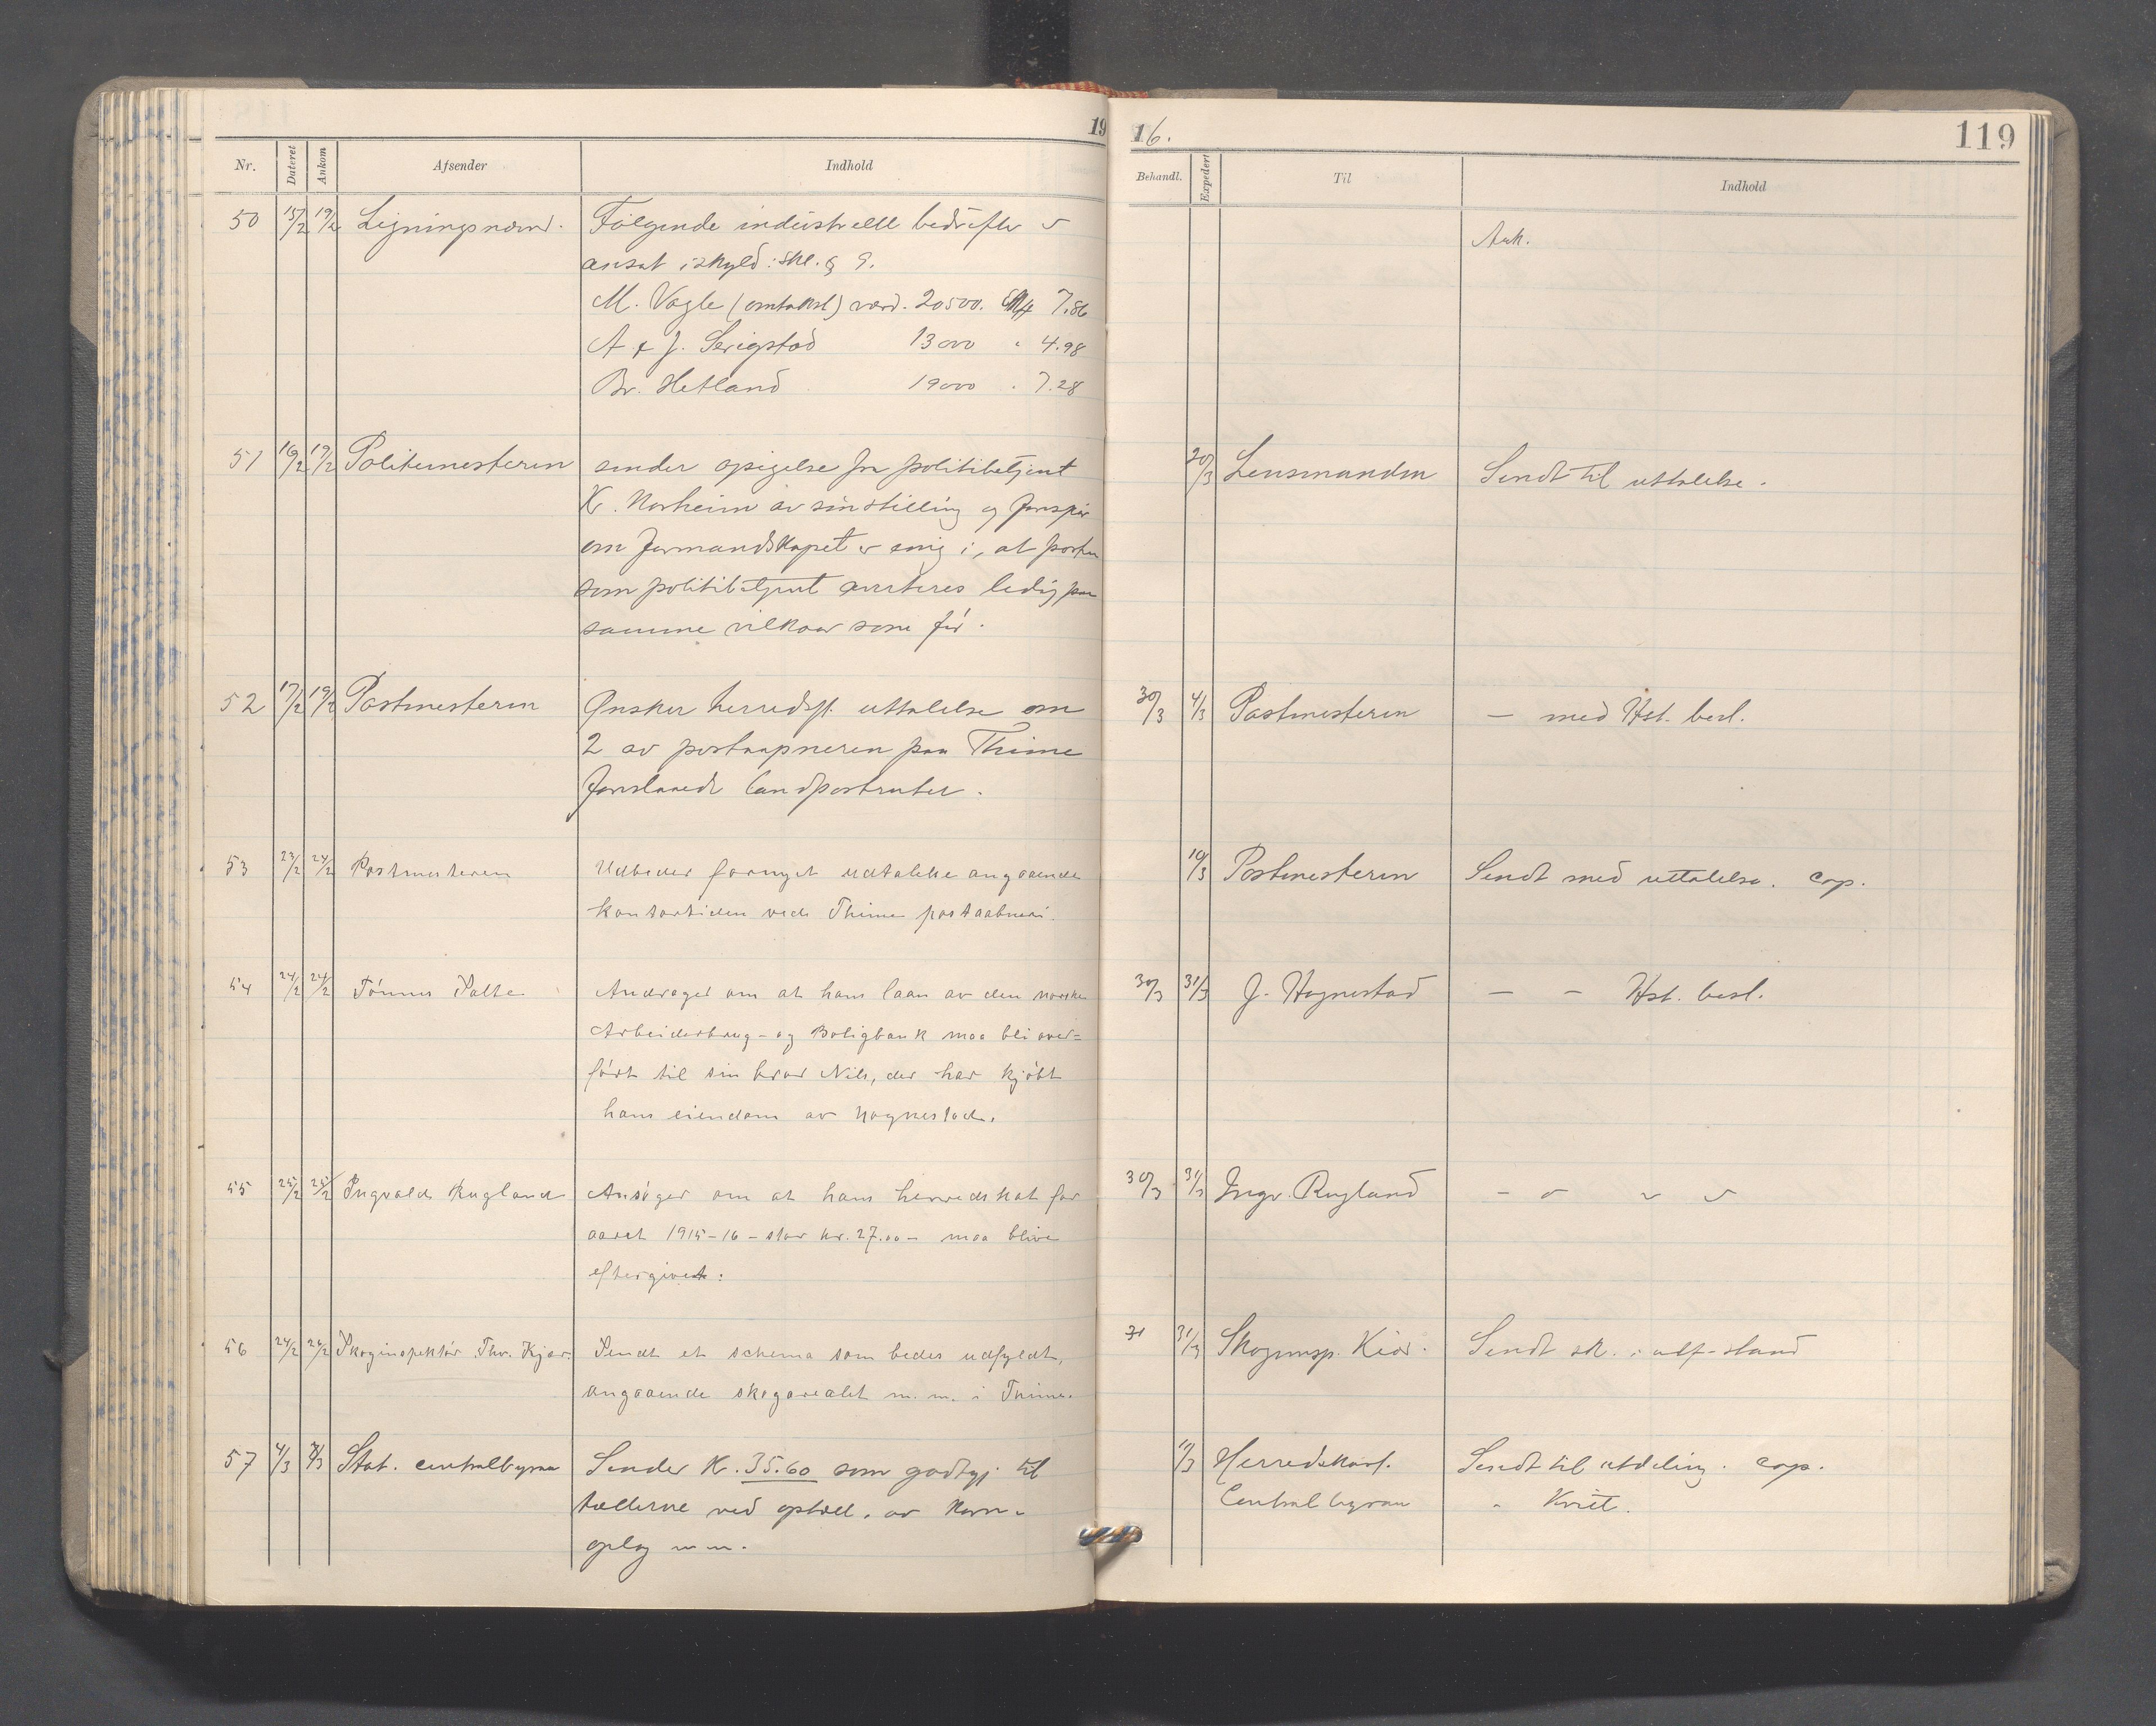 19
16.
119
Nr.
Dateret
Ankom
Afsender
Indhold
Behandl.
Expedert
Til
Indhold
50 15/2 19/2 Ligningsnævnd. Følgende industrielle bedrifter er
ansat i skyld: skl. § 9.
M. Vagle (omtakst) værd. 20500. 7.86
A & J. Serigstad 13000 " 4.98
Br. Hetland 19000 . 7.28
Ark.
51 16/2 19/2 Politimesteren sender opsigelse fra politibetjent
K. Norheim av sin stilling og forespør
om formandskapet er enig i, at posten
som politibetjent averteres ledig paa
samme vilkaar som før.
20/3 Lensmanden Sendt til uttalelse.
52 17/2 19/2 Postmesteren Ønsker herredsst. uttalelse om
2 av postaapneren paa Thime
foreslaaede landpostruter.
30/3 4/3 Postmesteren — med Hst. besl.
53 23/2 24/2 Postmesteren Udbeder fornyet udtalelse angaaende
kontortiden ved Thime postaabneri.
10/3 Postmesteren Sendt med uttalelse. Cop.
54 24/2 24/2 Tönnes Salte Andrager om at hans laan av den norske
Arbeiderbrug- og Boligbank maa bli over=
ført til sin bror Nils, der har kjøbt
hans eiendom av Hognestad.
30/3 31/3 J. Hognestad — — Hst. besl.
55 25/2 25/2 Ingvald Rugland Ansøger om at hans herredskat for
aaret 1915-16 - stor kr. 27.00 - maa blive
eftergivet.
30/3 31/3 Ingv. Rugland
56 24/2 26/2 Skoginspektør Thv. Kjær. Sendt et schema som bedes udfyldt,
angaaende skogarealet m.m. i Thime.
31 31/3 Skoginsp. Kiær. Sendt sk. i utf-stand
57 4/3 8/3 Stat. centralbyraa Sender Kr. 35.60 som godtgj. til
tællerne ved optæll. av korn-
oplag m.m.
10/3 Herredskass. Sendt til utdeling. Cop.
Centralbyraa " Kvit.